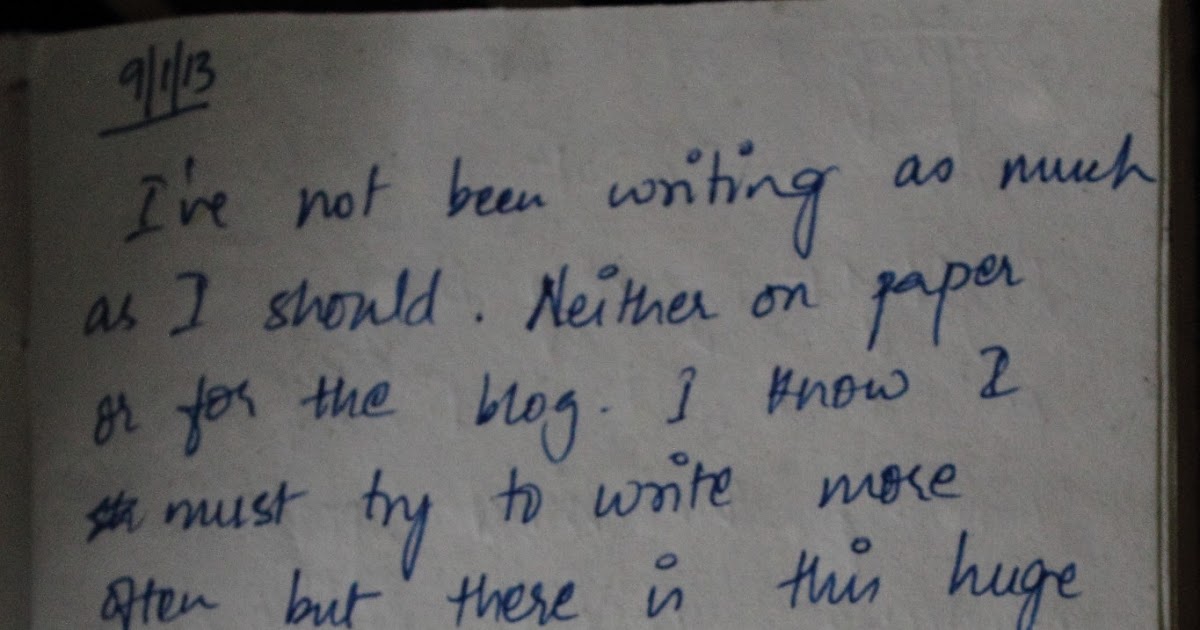 9/1/13
I've not been writing as much
as I should. Neither on paper
or for the blog. I know I
must try to write more
often but there is this huge